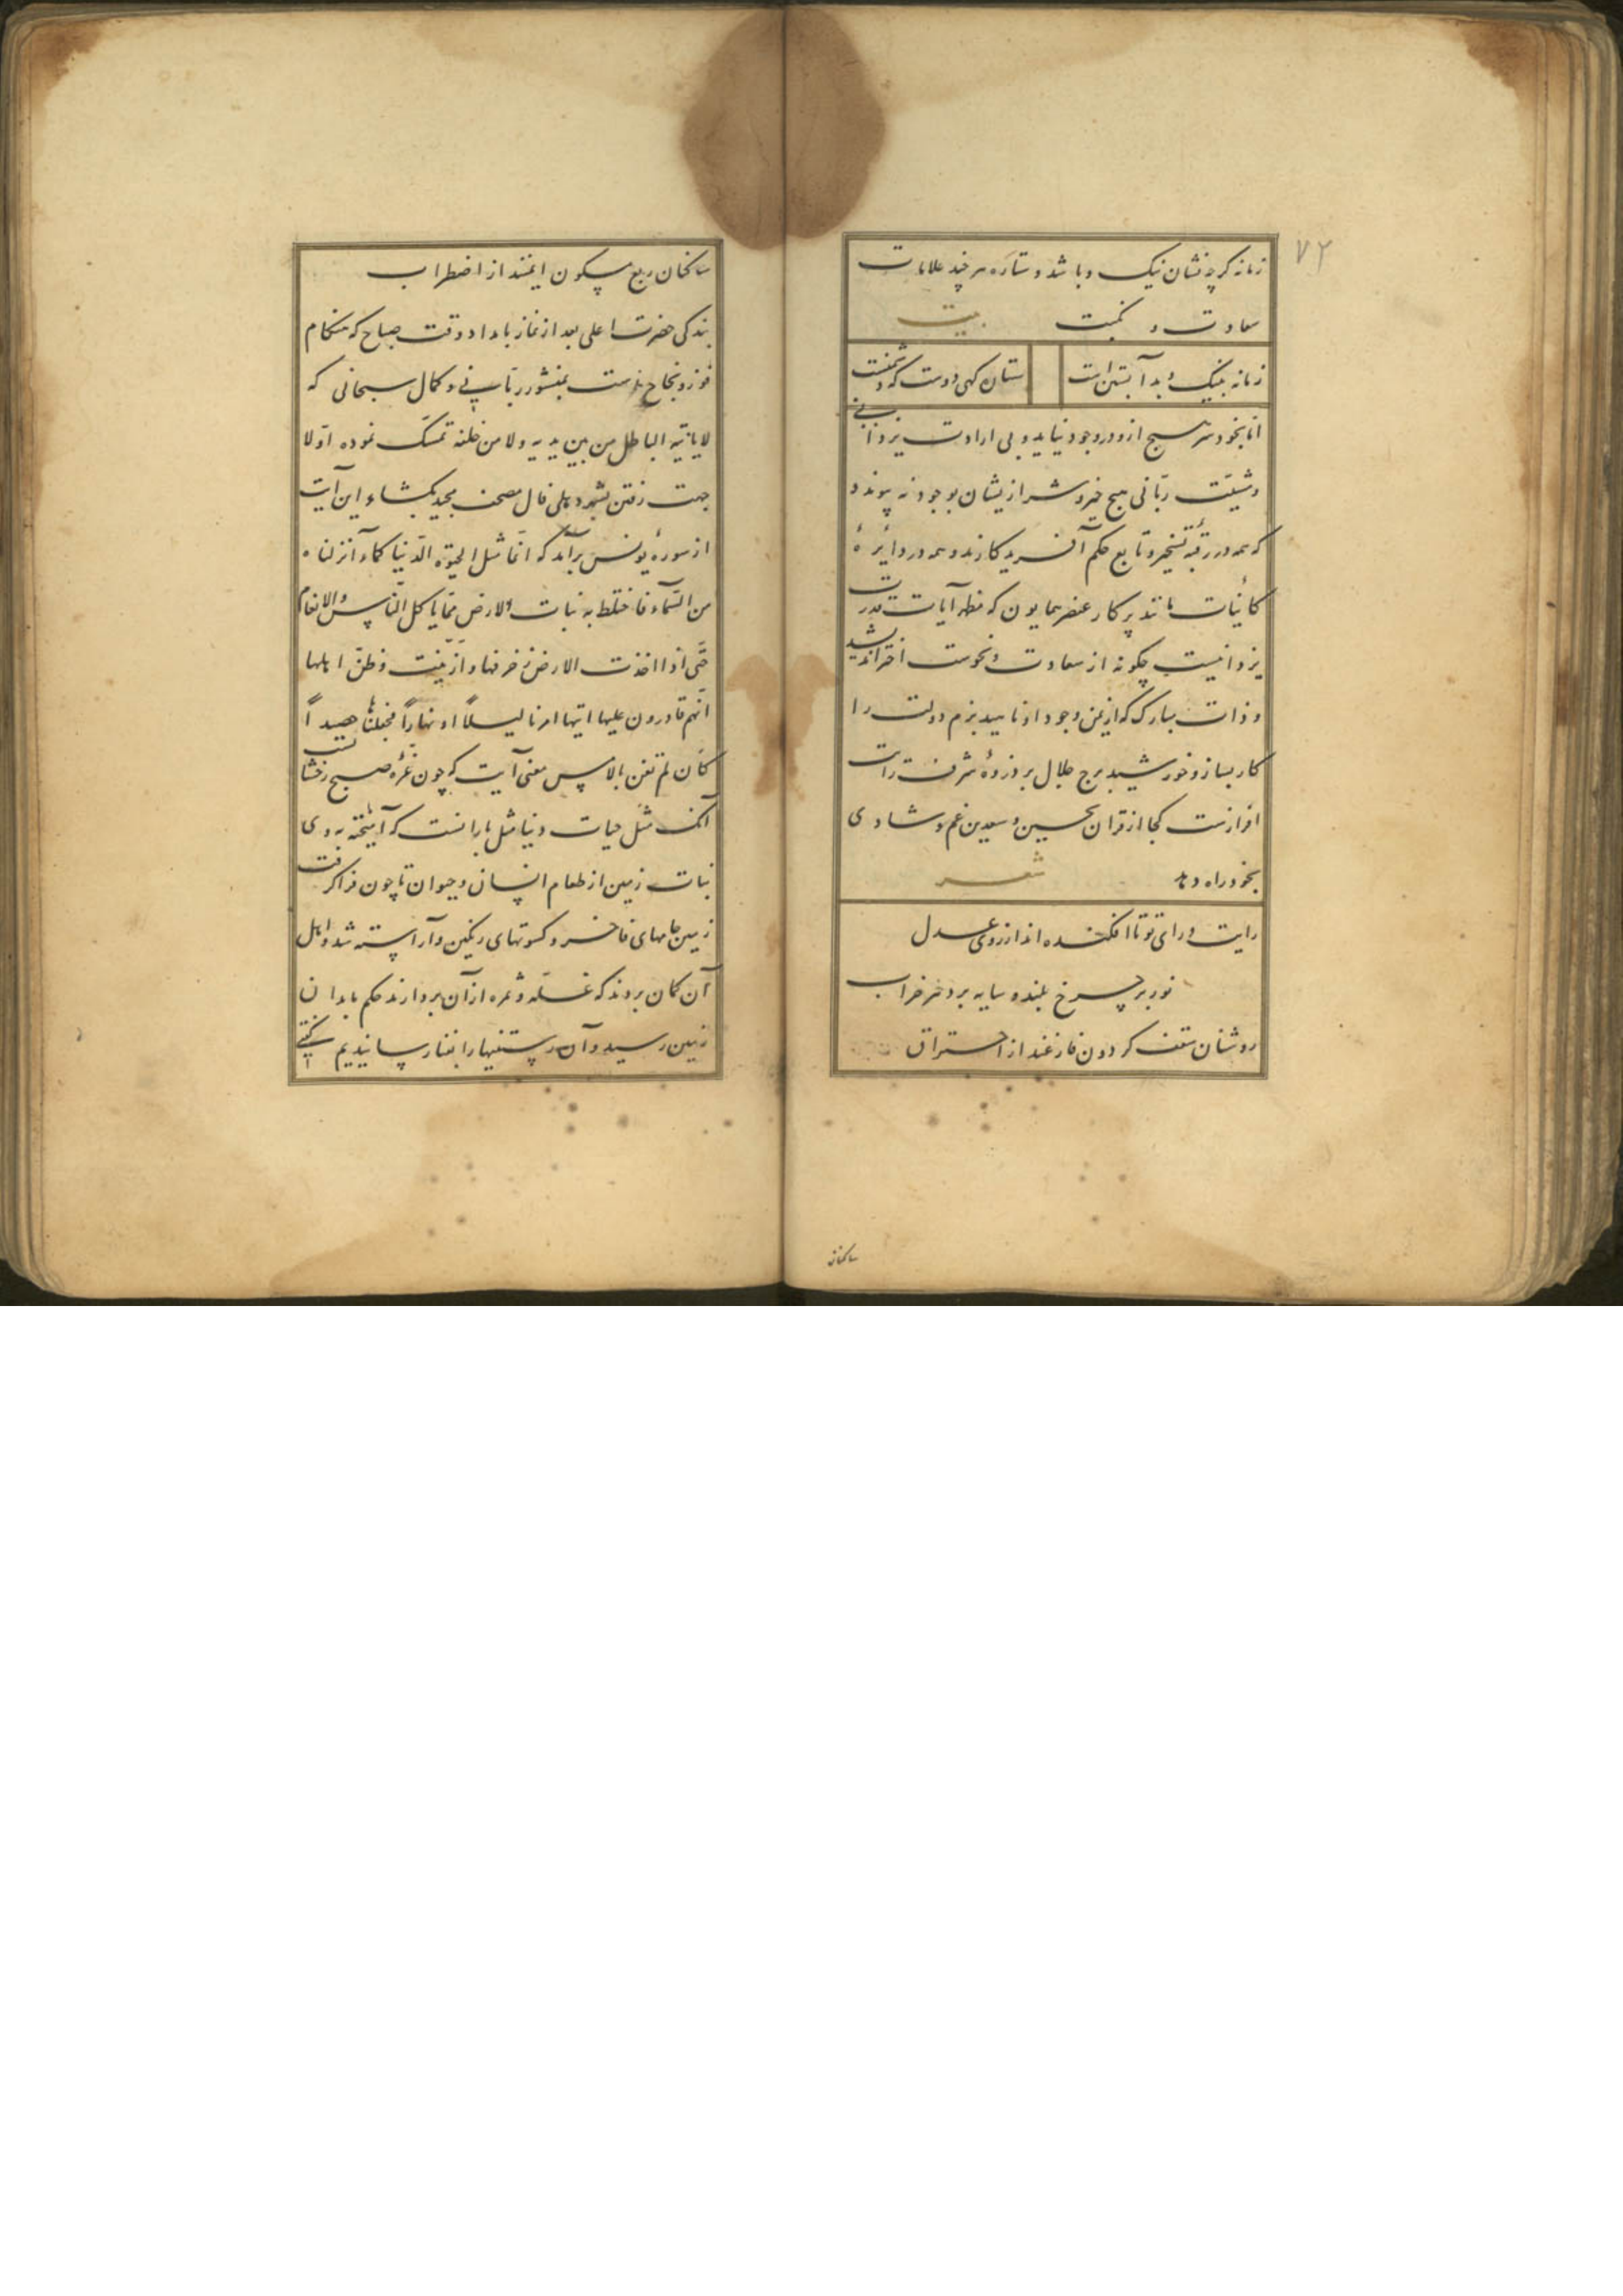 ۷۲
زمانه گرچه نشان نیک و بد باشد و ستاره هر چند علامات
سعادت و نکبت بیت
زمانه بنیک و بد آبستن است ستاره گهی دوست گه دشمنست
اما بخود هیچ ازو در وجود نیاید و بی ارادت یزدانی
و مشیّت ربّانی هیچ خیر و شر ازیشان بوجود نه پیوندد
که همه در ربقهٔ تسخیر و تابع حکم آفریدگارند و همه در دایرهٔ
کائنات مانند پرگار عنصر همایون که مظهر آیات قدرت
یزدانیست چگونه از سعادت و نحوست اختر اندیشد
و ذات مبارک که از یمن وجود او ناهید بزم دولت را
کار بساز و خورشید برج جلال بر ذروهٔ شرف رایت
افرازست کجا از قران نحسین و سعدین غم و شادی
بخود راه دهد شعر
رایت و رای تو تا افکنده اند از روی عدل
نور بر چرخ بلند و سایه بر دهر خراب
روشنان سقف گردون فارغند از احتراق
ساکنان
ساکنان ربع مسکون ایمنند از اضطراب
بندگی حضرت اعلی بعد از نماز بامداد وقت صباح که هنگام
فوز و نجاح است بمنشور ربّانی و کمال سبحانی که
لا یاتیه الباطل من بین یدیه ولا من خلفه تمسّک نموده اوّلا
جهت رفتن بشهر دهلی فال مصحف مجید بگشاد این آیت
از سورهٔ یونس برآمد که انّما مثل الحیوة الدّنیا کمآء انزلناه
من السّمآء فاختلط به نبات الارض ممّا یاکل النّاس والانعام
حتّی اذا اخذت الارض زخرفها وازّیّنت وظنّ اهلها
انّهم قادرون علیها اتیها امرنا لیلاً او نهاراً فجعلناها حصیداً
کان لم تغن بالامس معنی آیت که چون غرّه صبح رخشا نست
آنک مثل حیات دنیا مثل بارانست که آمیخته به وی
نبات زمین از طعام انسان و حیوان تا چون فراگرفت
زمین جامهای فاخر و کسوتهای رنگین و آراسته شد و اهل
آن گمان بردند که غلّه و ثمره از آن بردارند حکم ما بدان
زمین رسید و آن رستنیها را بفنا رسانیدیم گفتی